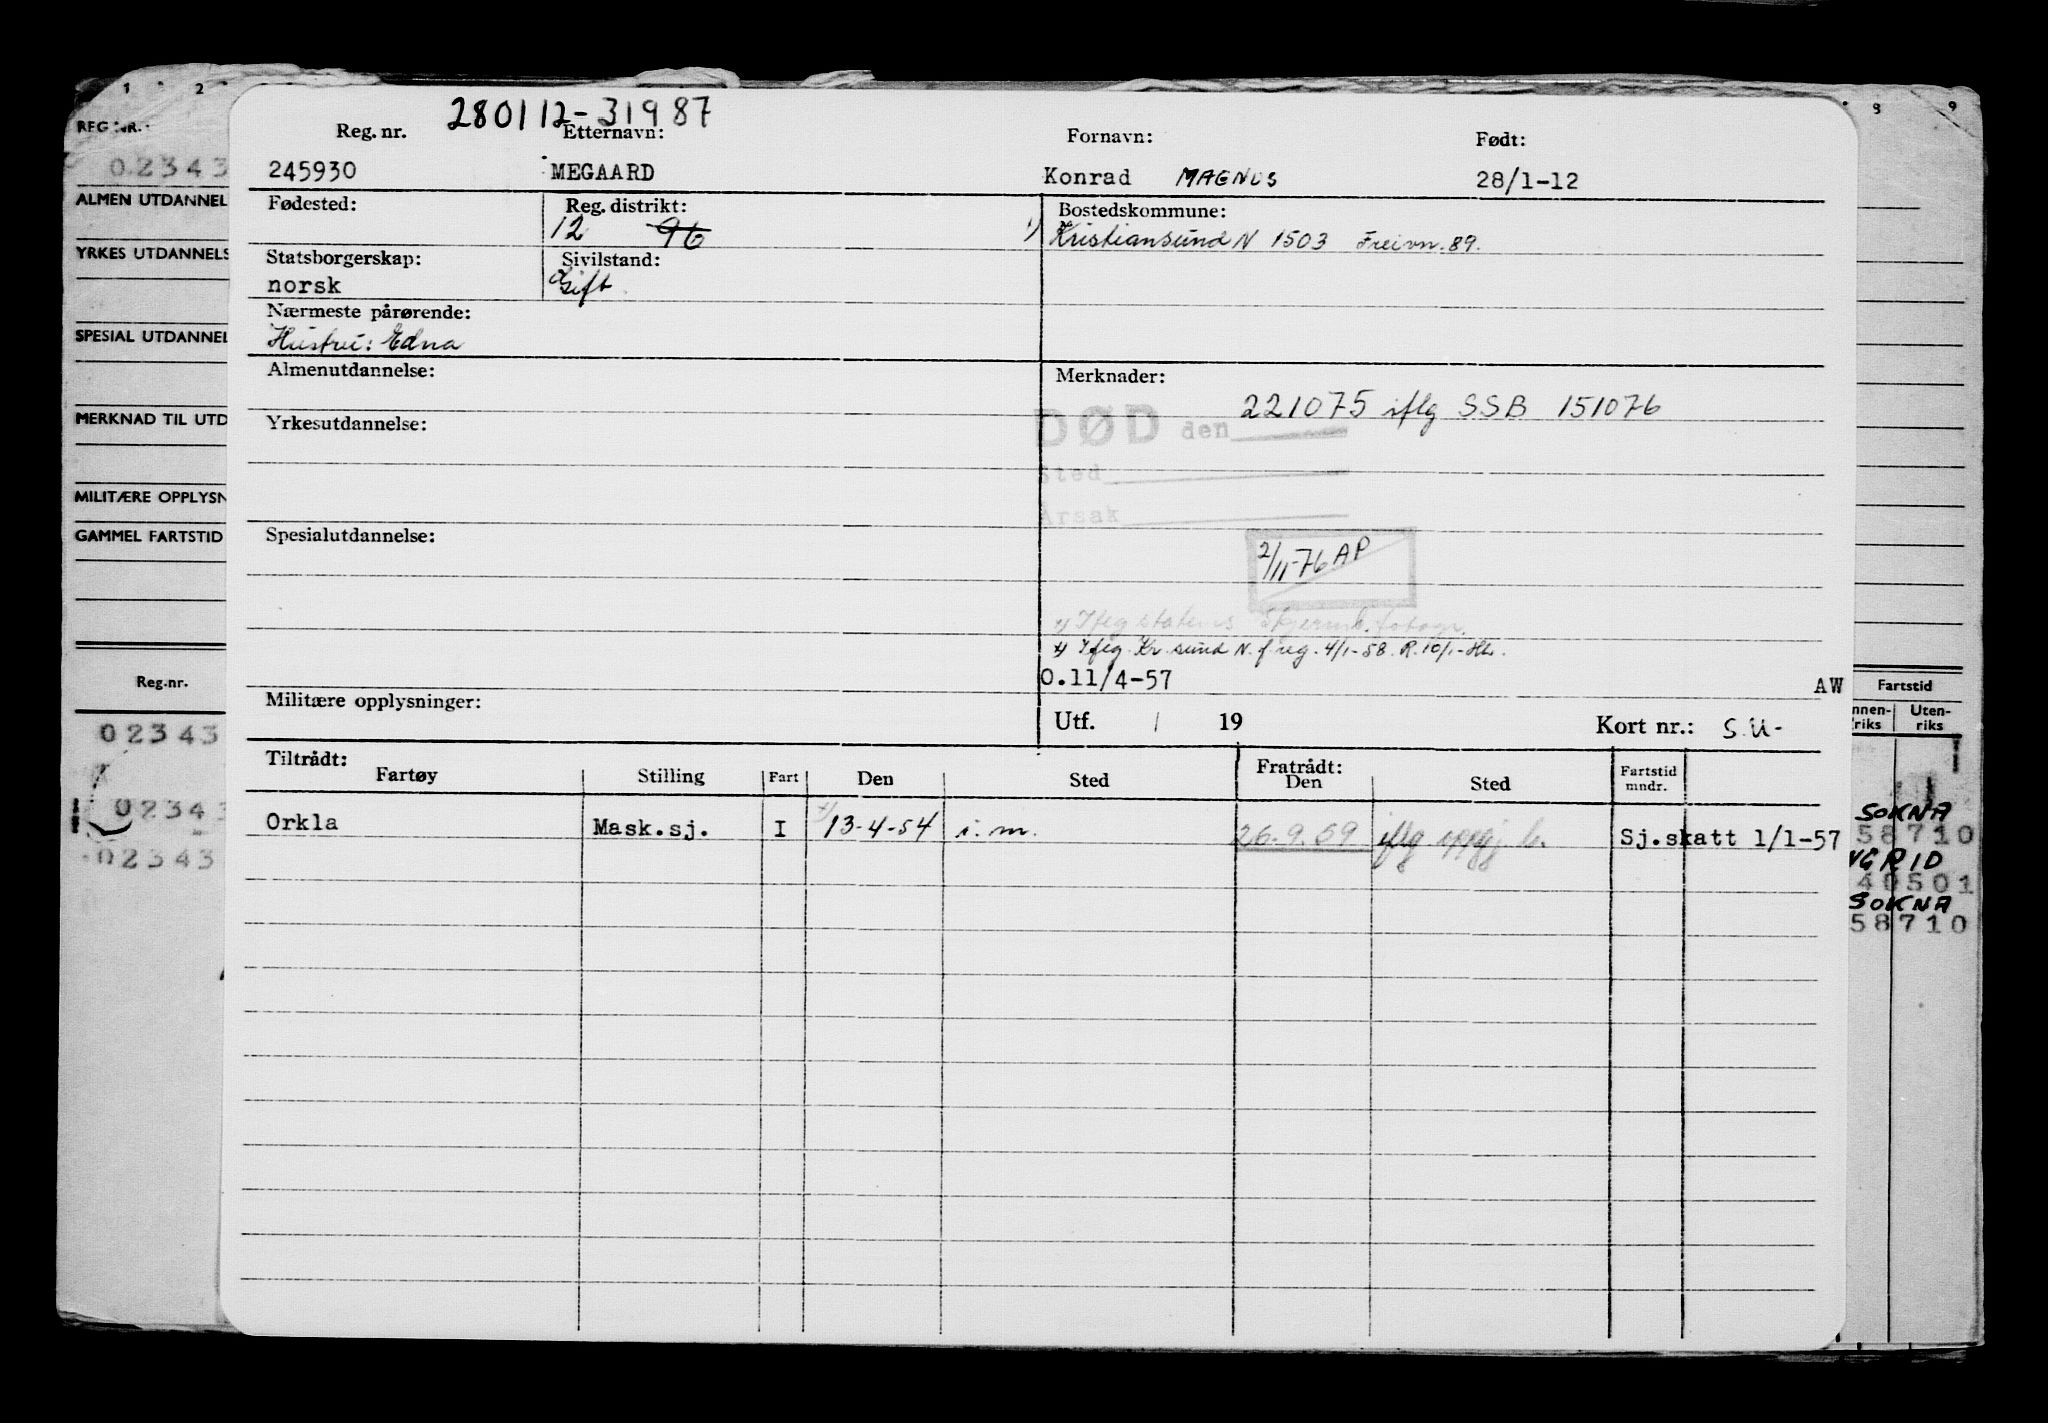 1 2 8 9
280112-31987
REG. NR.
Reg. nr. Etternavn: Fornavn: Født:
02343
245930 MEGAARD Konrad MAGNUS 28/1-12
ALMEN UTDANNEL
Fødested: Reg. distrikt: Bostedskommune:
12 96 1) Kristiansund N 1503 Freivn. 89.
YRKES UTDANNELS
Statsborgerskap: Sivilstand:
norsk Gift
Nærmeste pårørende:
SPESIAL UTDANNEL
Hustru: Edna
Almenutdannelse: Merknader:
221075 iflg SSB 151076
MERKNAD TIL UTD
Yrkesutdannelse: DØD den
Sted
MILITÆRE OPPLYSN
Årsak
GAMMEL FARTSTID
Spesialutdannelse:
2/11-76 AP
x) Iflg statens
x) Iflg. Kr. sund N. f reg. 4/1-58. R. 10/1-
O.11/4-57 AW
Reg.nr. Fartstid
Militære opplysninger: Utf. / 19 Kort nr.: S.U-
nnenriks Utenriks
02343
Tiltrådt: Fratrådt:
Fartøy Stilling Fart Den Sted Den Sted Fartstid mndr.
02343 SOKNA
Orkla Mask.sj. I 13-4-54 i.m. 26.9.59 iflg Sj.skatt 1/1-57
58710
02343 NGRID
40501
SOKNA
58710